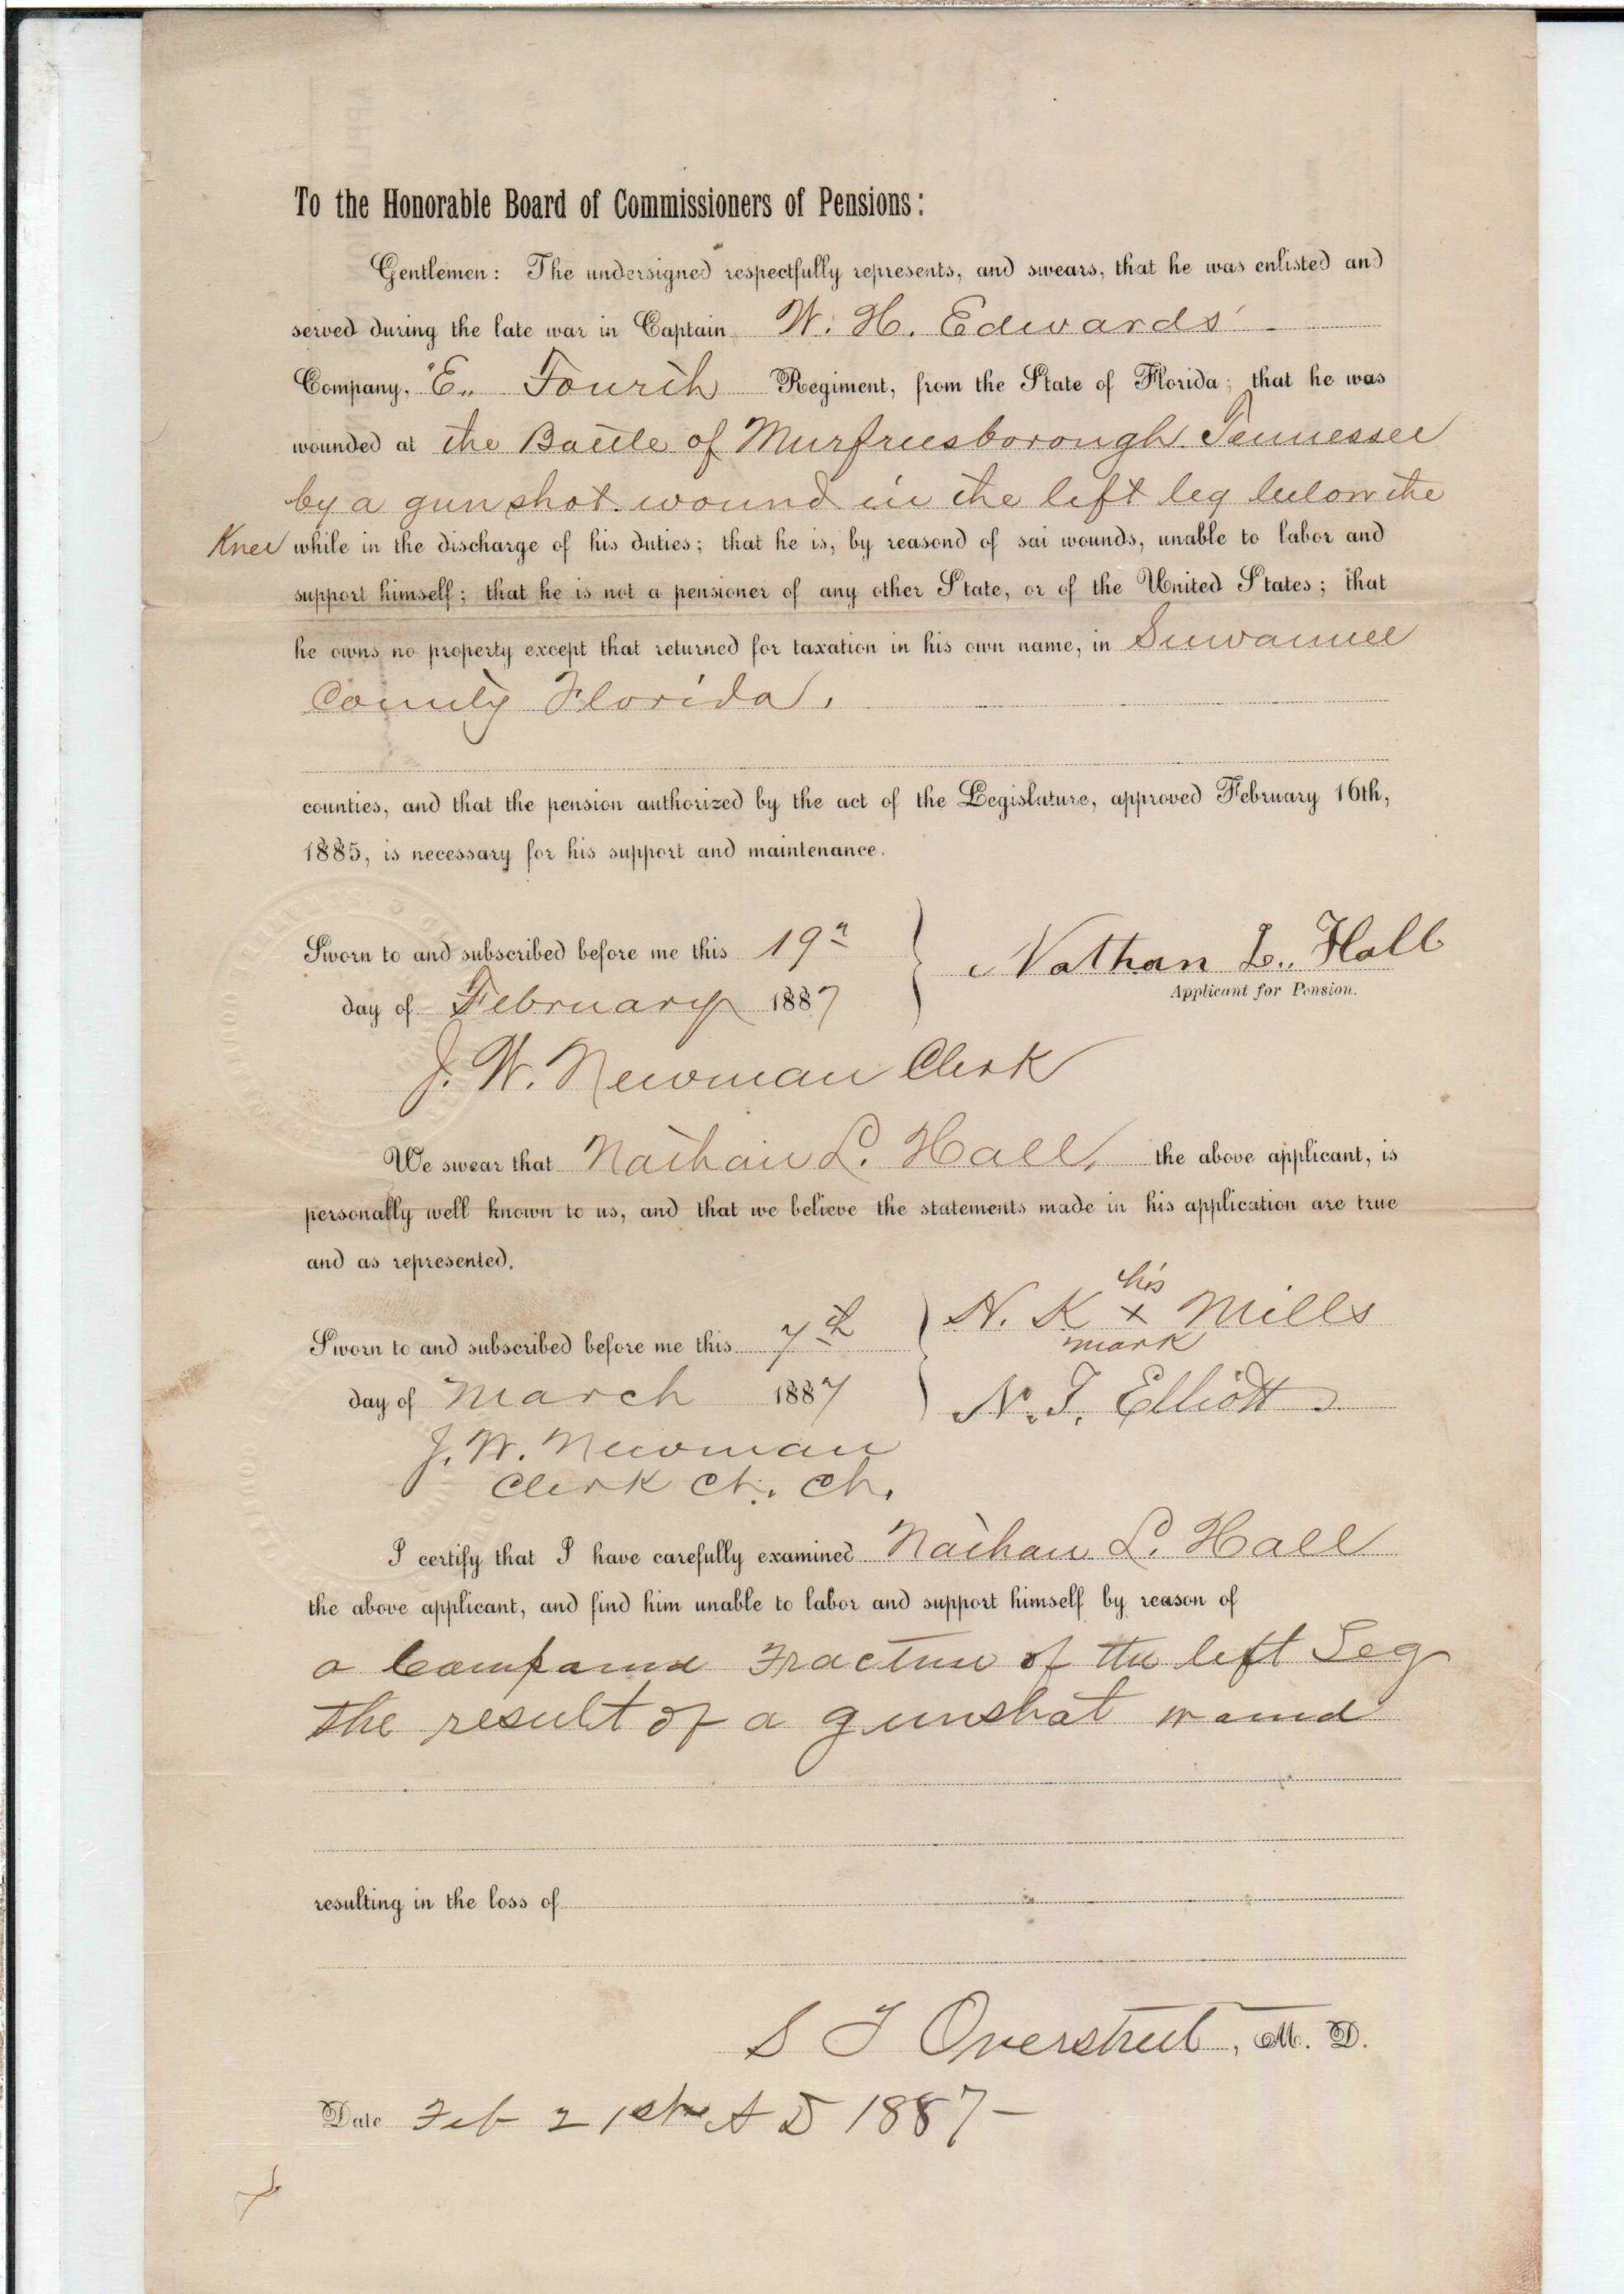 To the Honorable Board of Commissioners of Pensions:
Gentlemen: The undersigned respectfully represents, and swears, that he was enlisted and
served during the late war in Captain W. H. Edwards
Company, "E" Fourth Regiment, from the State of Florida; that he was
wounded at the Battle of Murfreesborough Tennessee
by a gun shot wound in the left leg below the
Knee while in the discharge of his duties; that he is, by reasond of sai wounds, unable to labor and
support himself; that he is not a pensioner of any other State, or of the United States; that
he owns no property except that returned for taxation in his own name, in Suwannee
County Florida.
counties, and that the pension authorized by the act of the Legislature, approved February 16th,
1885, is necessary for his support and maintenance.
Sworn to and subscribed before me this 19"
Nathan L. Hall
Applicant for Pension.
day of February 1887
J. W. Newman Clerk
We swear that Nathan L. Hall, the above applicant, is
personally well known to us, and that we believe the statements made in his application are true
and as represented.
his
N. K x Mills
mark
Sworn to and subscribed before me this 7th
day of March 1887
N. T. Elliott
J. W. Newman
Clerk Ct. Ct.
I certify that I have carefully examined Nathan L. Hall
the above applicant, and find him unable to labor and support himself by reason of
a Compound Fracture of the left Leg
the result of a gunshot wound
resulting in the loss of
S T Overstreet, M. D.
Date Feb 21st A D 1887-